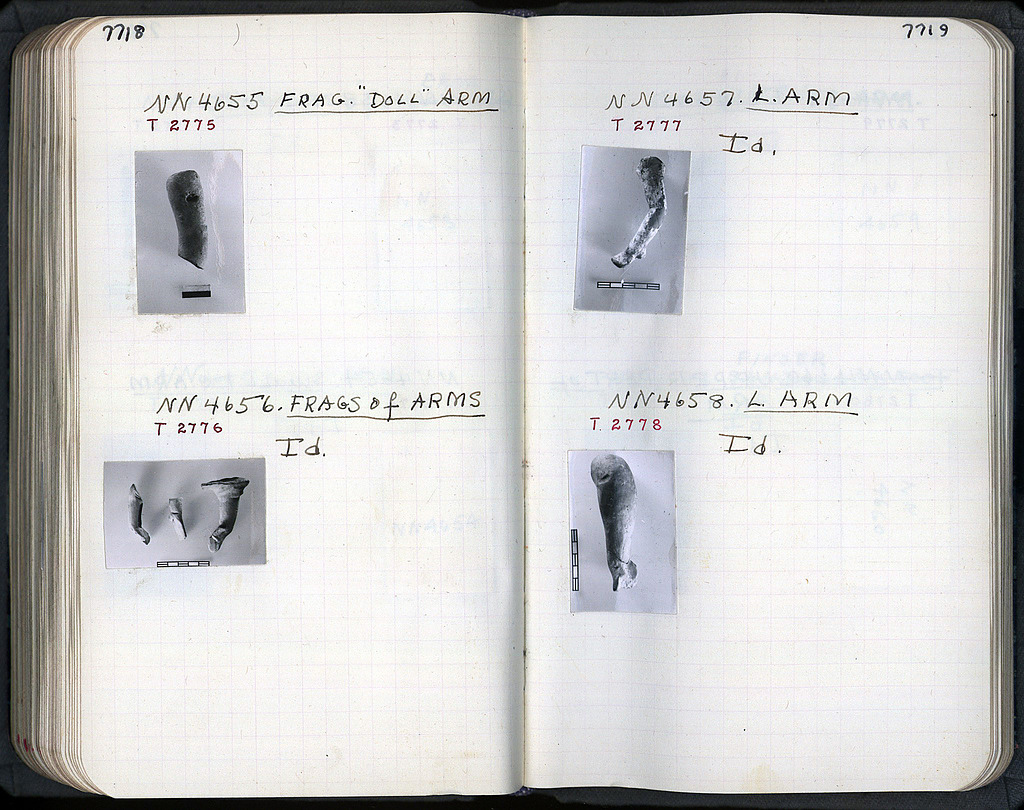 7718
NN 4655 FRAG. "DOLL" ARM
T 2775
NN 4656. FRAGS of ARMS
T 2776
Id.
7719
NN 4657. L. ARM
T 2777
Id.
NN 4658. L. ARM
T 2778
Id.